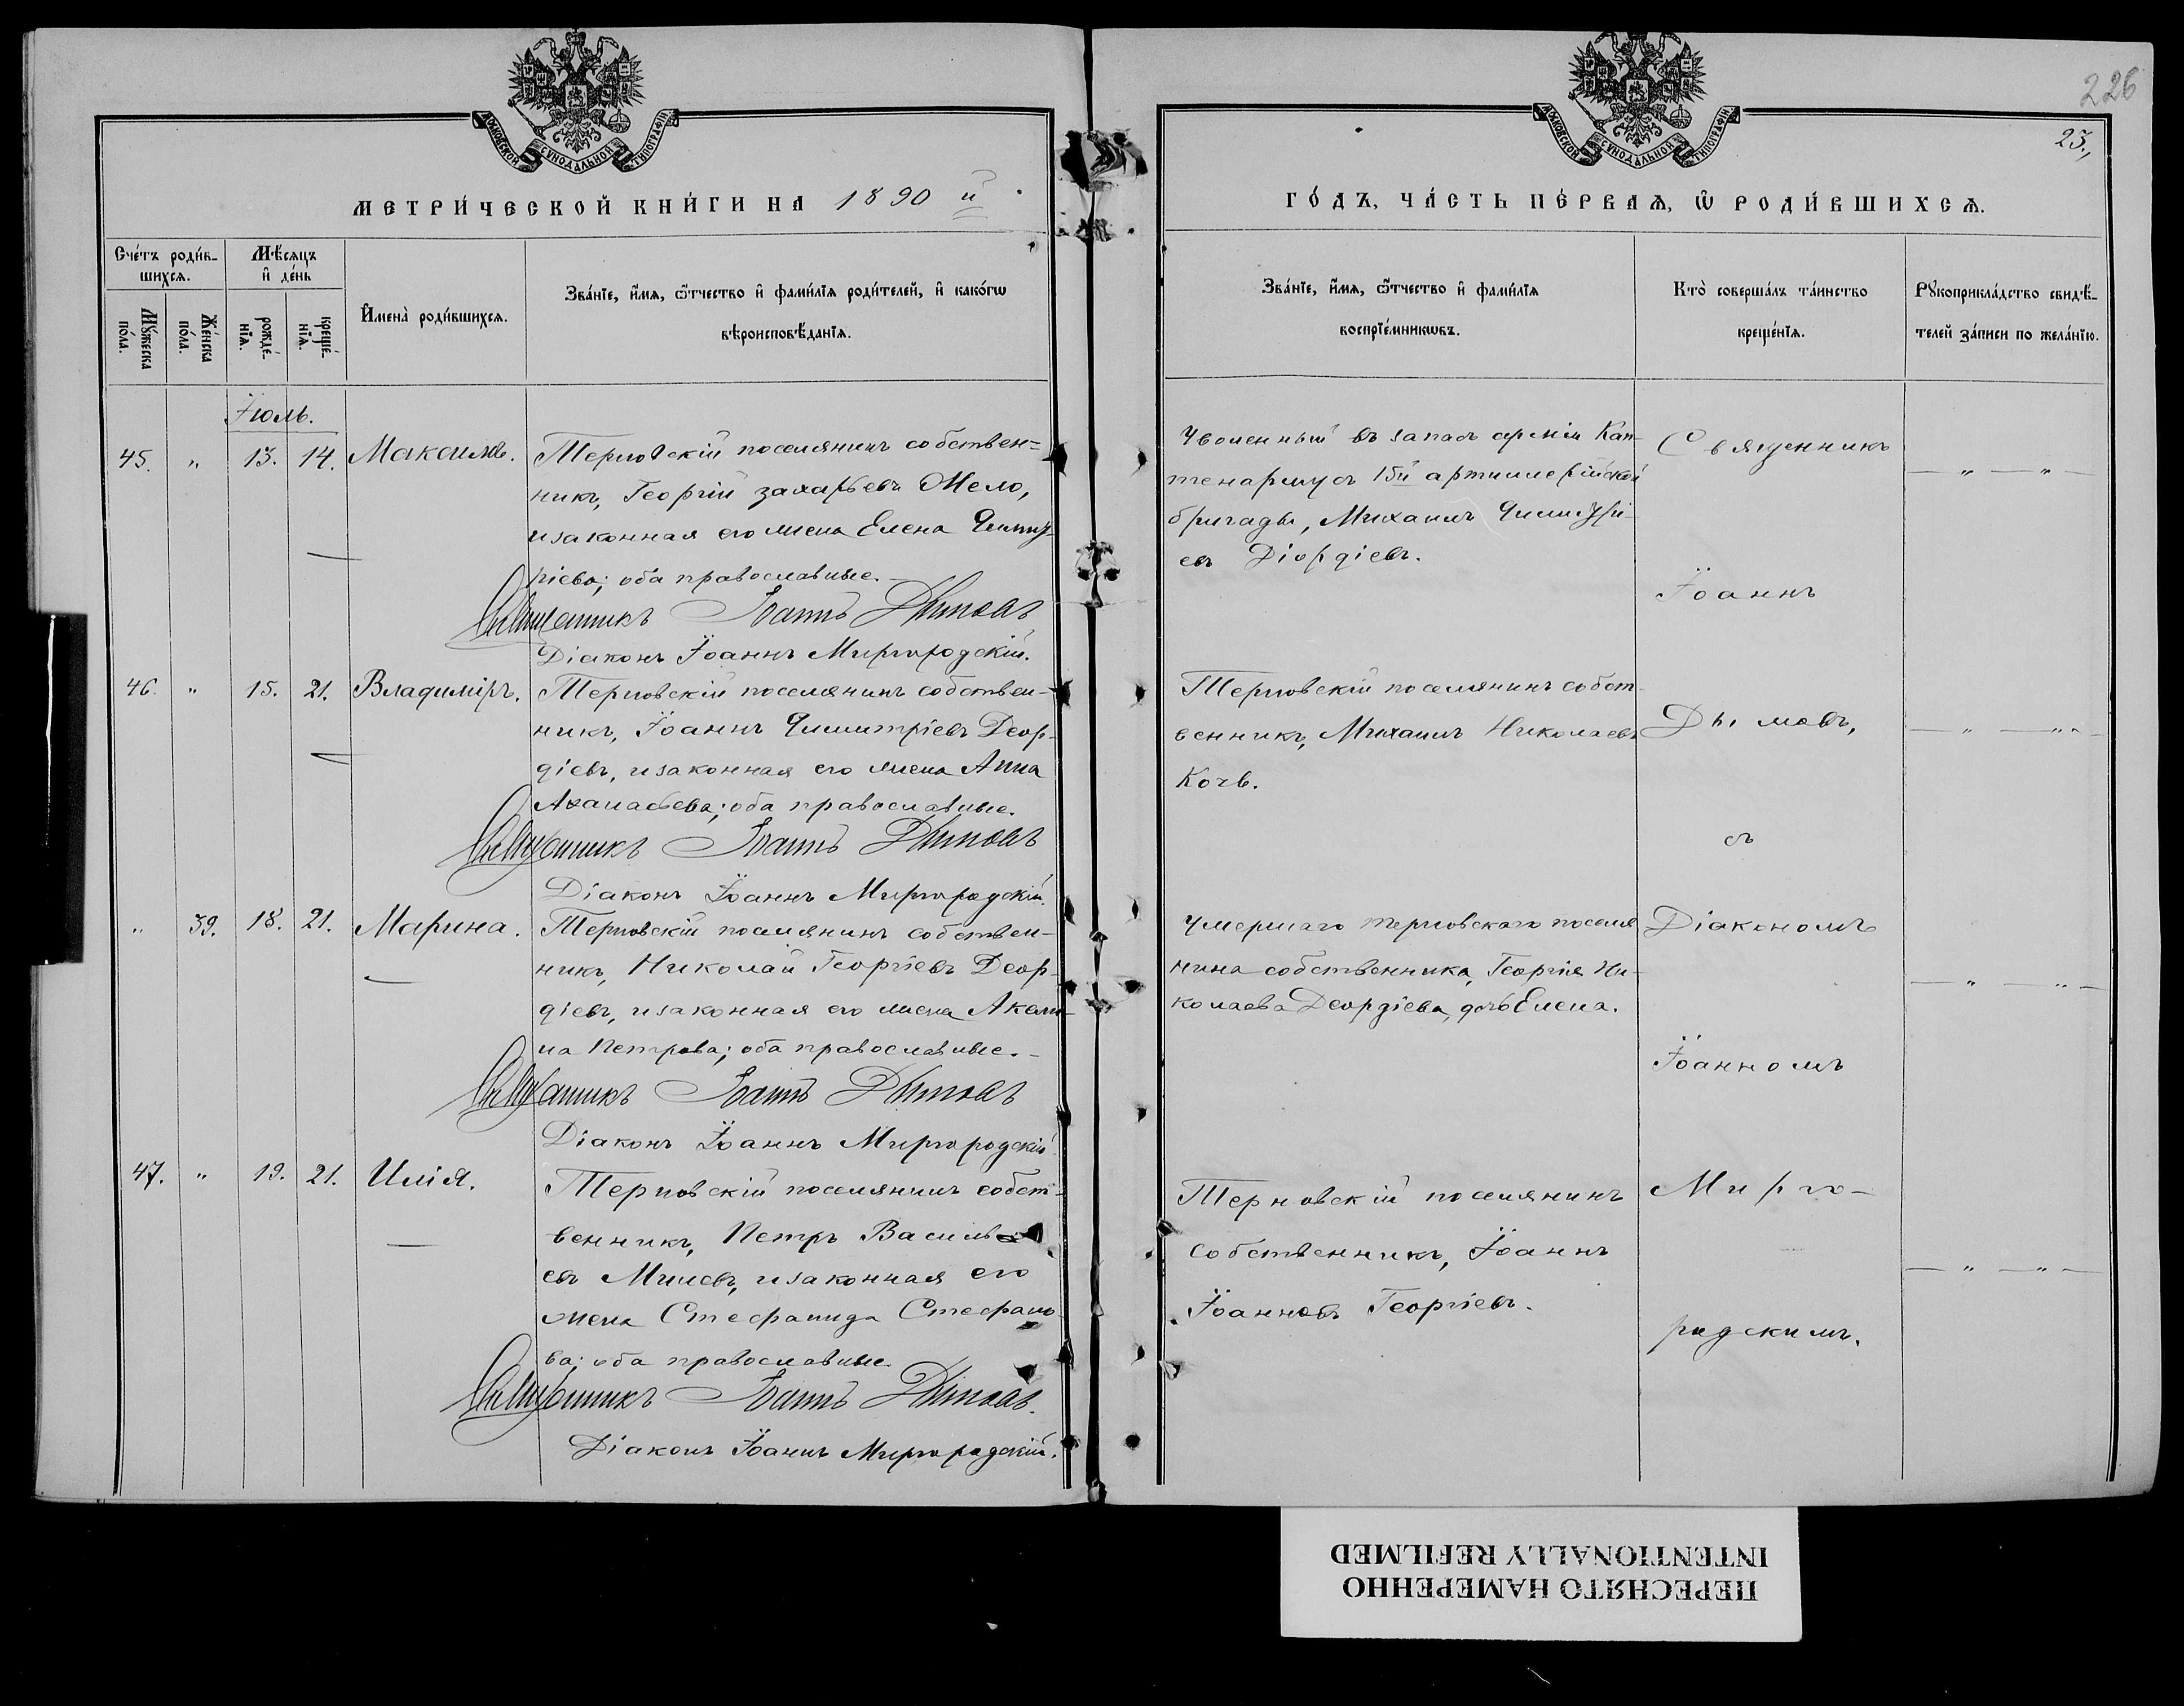 МОСКОВСКОЙ СѴНОДАЛЬНОЙ ТИПОГРАФІИ
МЕТРИ́ЧЕСКОЙ КНИ́ГИ НА 1890 й
Сче́тъ роди́в-
шихсѧ.
Мѣ́сяцъ
и҆ де́нь
Мꙋ́жеска
по́ла.
Же́нска
по́ла.
рожде́-
нїѧ.
креще́-
нїѧ.
И҆мена̀ роди́вшихсѧ.
Зва́нїе, и҆́мѧ, ѻ҆́тчество и҆ фами́лїѧ роди́телей, и҆ како́гѡ
вѣроисповѣ́данїѧ.
Іюль.
45. " 13. 14. Максимъ.
Терновскій поселянинъ собствен=
никъ, Георгій Захарьевъ Мело,
и законная его жена Елена Димит-
ріева; оба православные.
Священникъ Іоаннъ Дымовъ
Діаконъ Іоаннъ Миргородскій.
46. " 15. 21. Владиміръ.
Терновскій поселянинъ собствен-
никъ, Іоаннъ Димитріевъ Деор-
діевъ, и законная его жена Анна
Аѳанасьева; оба православные.
Священникъ Іоаннъ Дымовъ
Діаконъ Іоаннъ Миргородскій.
" 39. 18. 21. Марина.
Терновскій поселянинъ собствен-
никъ, Николай Георгіевъ Деор-
діевъ, и законная его жена Акели-
на Петрова; оба православные.
Священникъ Іоаннъ Дымовъ
Діаконъ Іоаннъ Миргородскій
47. " 19. 21. Илія.
Терновскій поселянинъ собст-
венникъ, Петръ Василь
евъ Милевъ, и законная его
жена Стефанида Стефано
ва; оба православные.
Священникъ Іоаннъ Дымовъ.
Діаконъ Іоаннъ Миргородскій.
226
23.,
МОСКОВСКОЙ СѴНОДАЛЬНОЙ ТИПОГРАФІИ
ГО́ДЪ, ЧА́СТЬ ПЕ́РВАѦ, Ѡ҆ РОДИ́ВШИХСѦ.
Зва́нїе, и҆́мѧ, ѻ҆́тчество и҆ фами́лїѧ
воспрїе́мникѡвъ.
Кто̀ соверша́лъ та́инство
креще́нїѧ.
Рꙋкоприкла́дство свидѣ́-
телей за́писи по жела́нїю.
Уволенный въ запасъ арміи Кап-
тенармусъ 15й артиллерійской
бригады, Михаилъ Димитрі-
евъ Діордіевъ.
Терновскій поселянинъ собст-
венникъ, Михаилъ Николаевъ
Кочь.
Умершаго терновскаго поселя
нина собственника, Георгія Ни-
колаева Деордіева, дочь Елена.
Терновскій поселянинъ
собственникъ, Іоаннъ
Іоанновъ Георгіевъ.
Священникъ
Іоаннъ
Дымовъ,
съ
Діакономъ
Іоанномъ
Мирго-
родскимъ.
— " — " —
— " — " —
— " — " —
— " — " —
ПЕРЕСНЯТО НАМЕРЕННО
INTENTIONALLY REFILMED